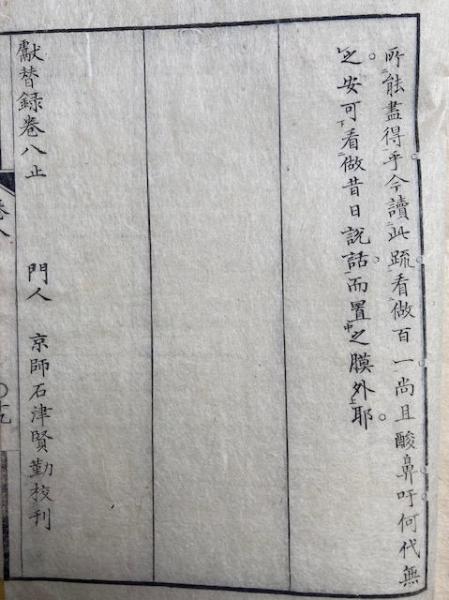 所能盡得乎今讀此疏看做百一尚且酸鼻吁何代無
之安可看做昔日説話而置之膜外耶
獻替録卷八止
門人 京師石津賢勤校刊
卷八
〇十九